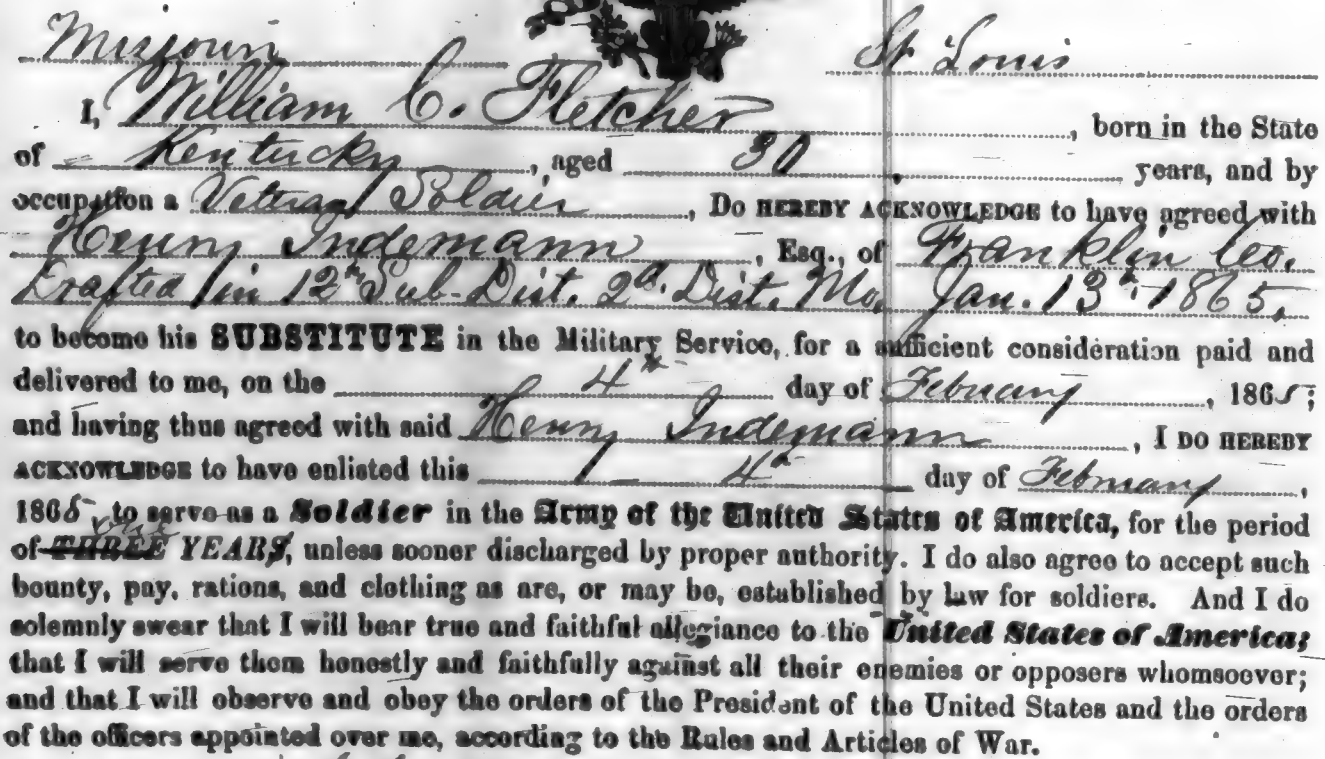 Missouri St Louis
I, William C. Fletcher, born in the State
of Kentucky, aged 30 years, and by
occupation a Veteran Soldier, Do HEREBY ACKNOWLEDGE to have agreed with
Henry Indemann, Esq., of Franklin Co.
Drafted in 12th Sub-Dist. 2d. Dist. Mo. Jan. 13th 1865,
to become his SUBSTITUTE in the Military Service, for a sufficient consideration paid and
delivered to me, on the 4th day of February, 1865;
and having thus agreed with said Henry Indemann, I DO HEREBY
ACKNOWLEDGE to have enlisted this 4th day of February,
1865 to serve as a Soldier in the Army of the United States of America, for the period
of one THREE YEARS, unless sooner discharged by proper authority. I do also agree to accept such
bounty, pay, rations, and clothing as are, or may be, established by law for soldiers. And I do
solemnly swear that I will bear true and faithful allegiance to the United States of America;
that I will serve them honestly and faithfully against all their enemies or opposers whomsoever;
and that I will observe and obey the orders of the President of the United States and the orders
of the officers appointed over me, according to the Rules and Articles of War.